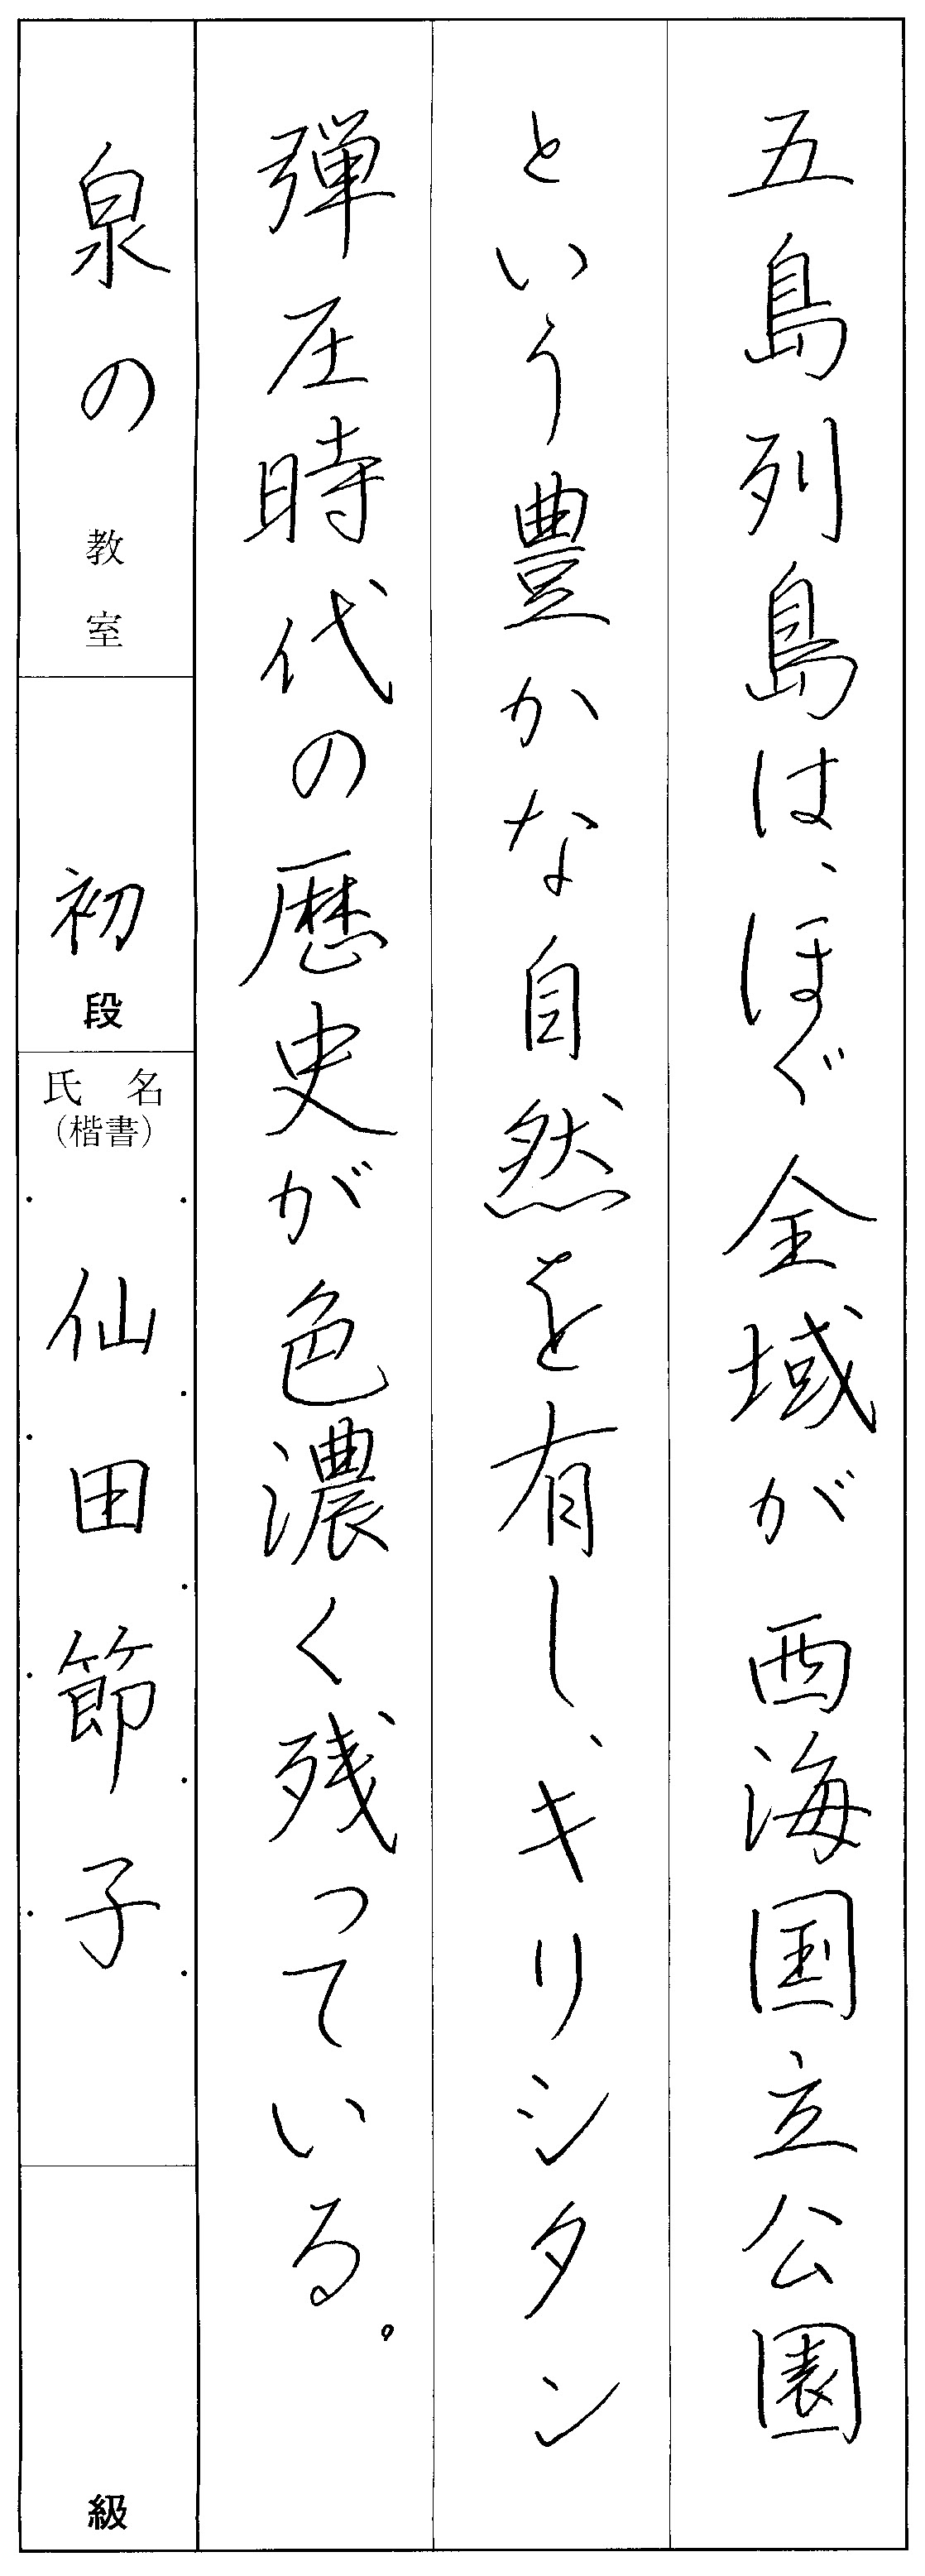 五島列島は、ほゞ全域が西海国立公園
という豊かな自然を有し、キリシタン
弾圧時代の歴史が色濃く残っている。
泉の教室
初段
氏名
(楷書)
仙田節子
級